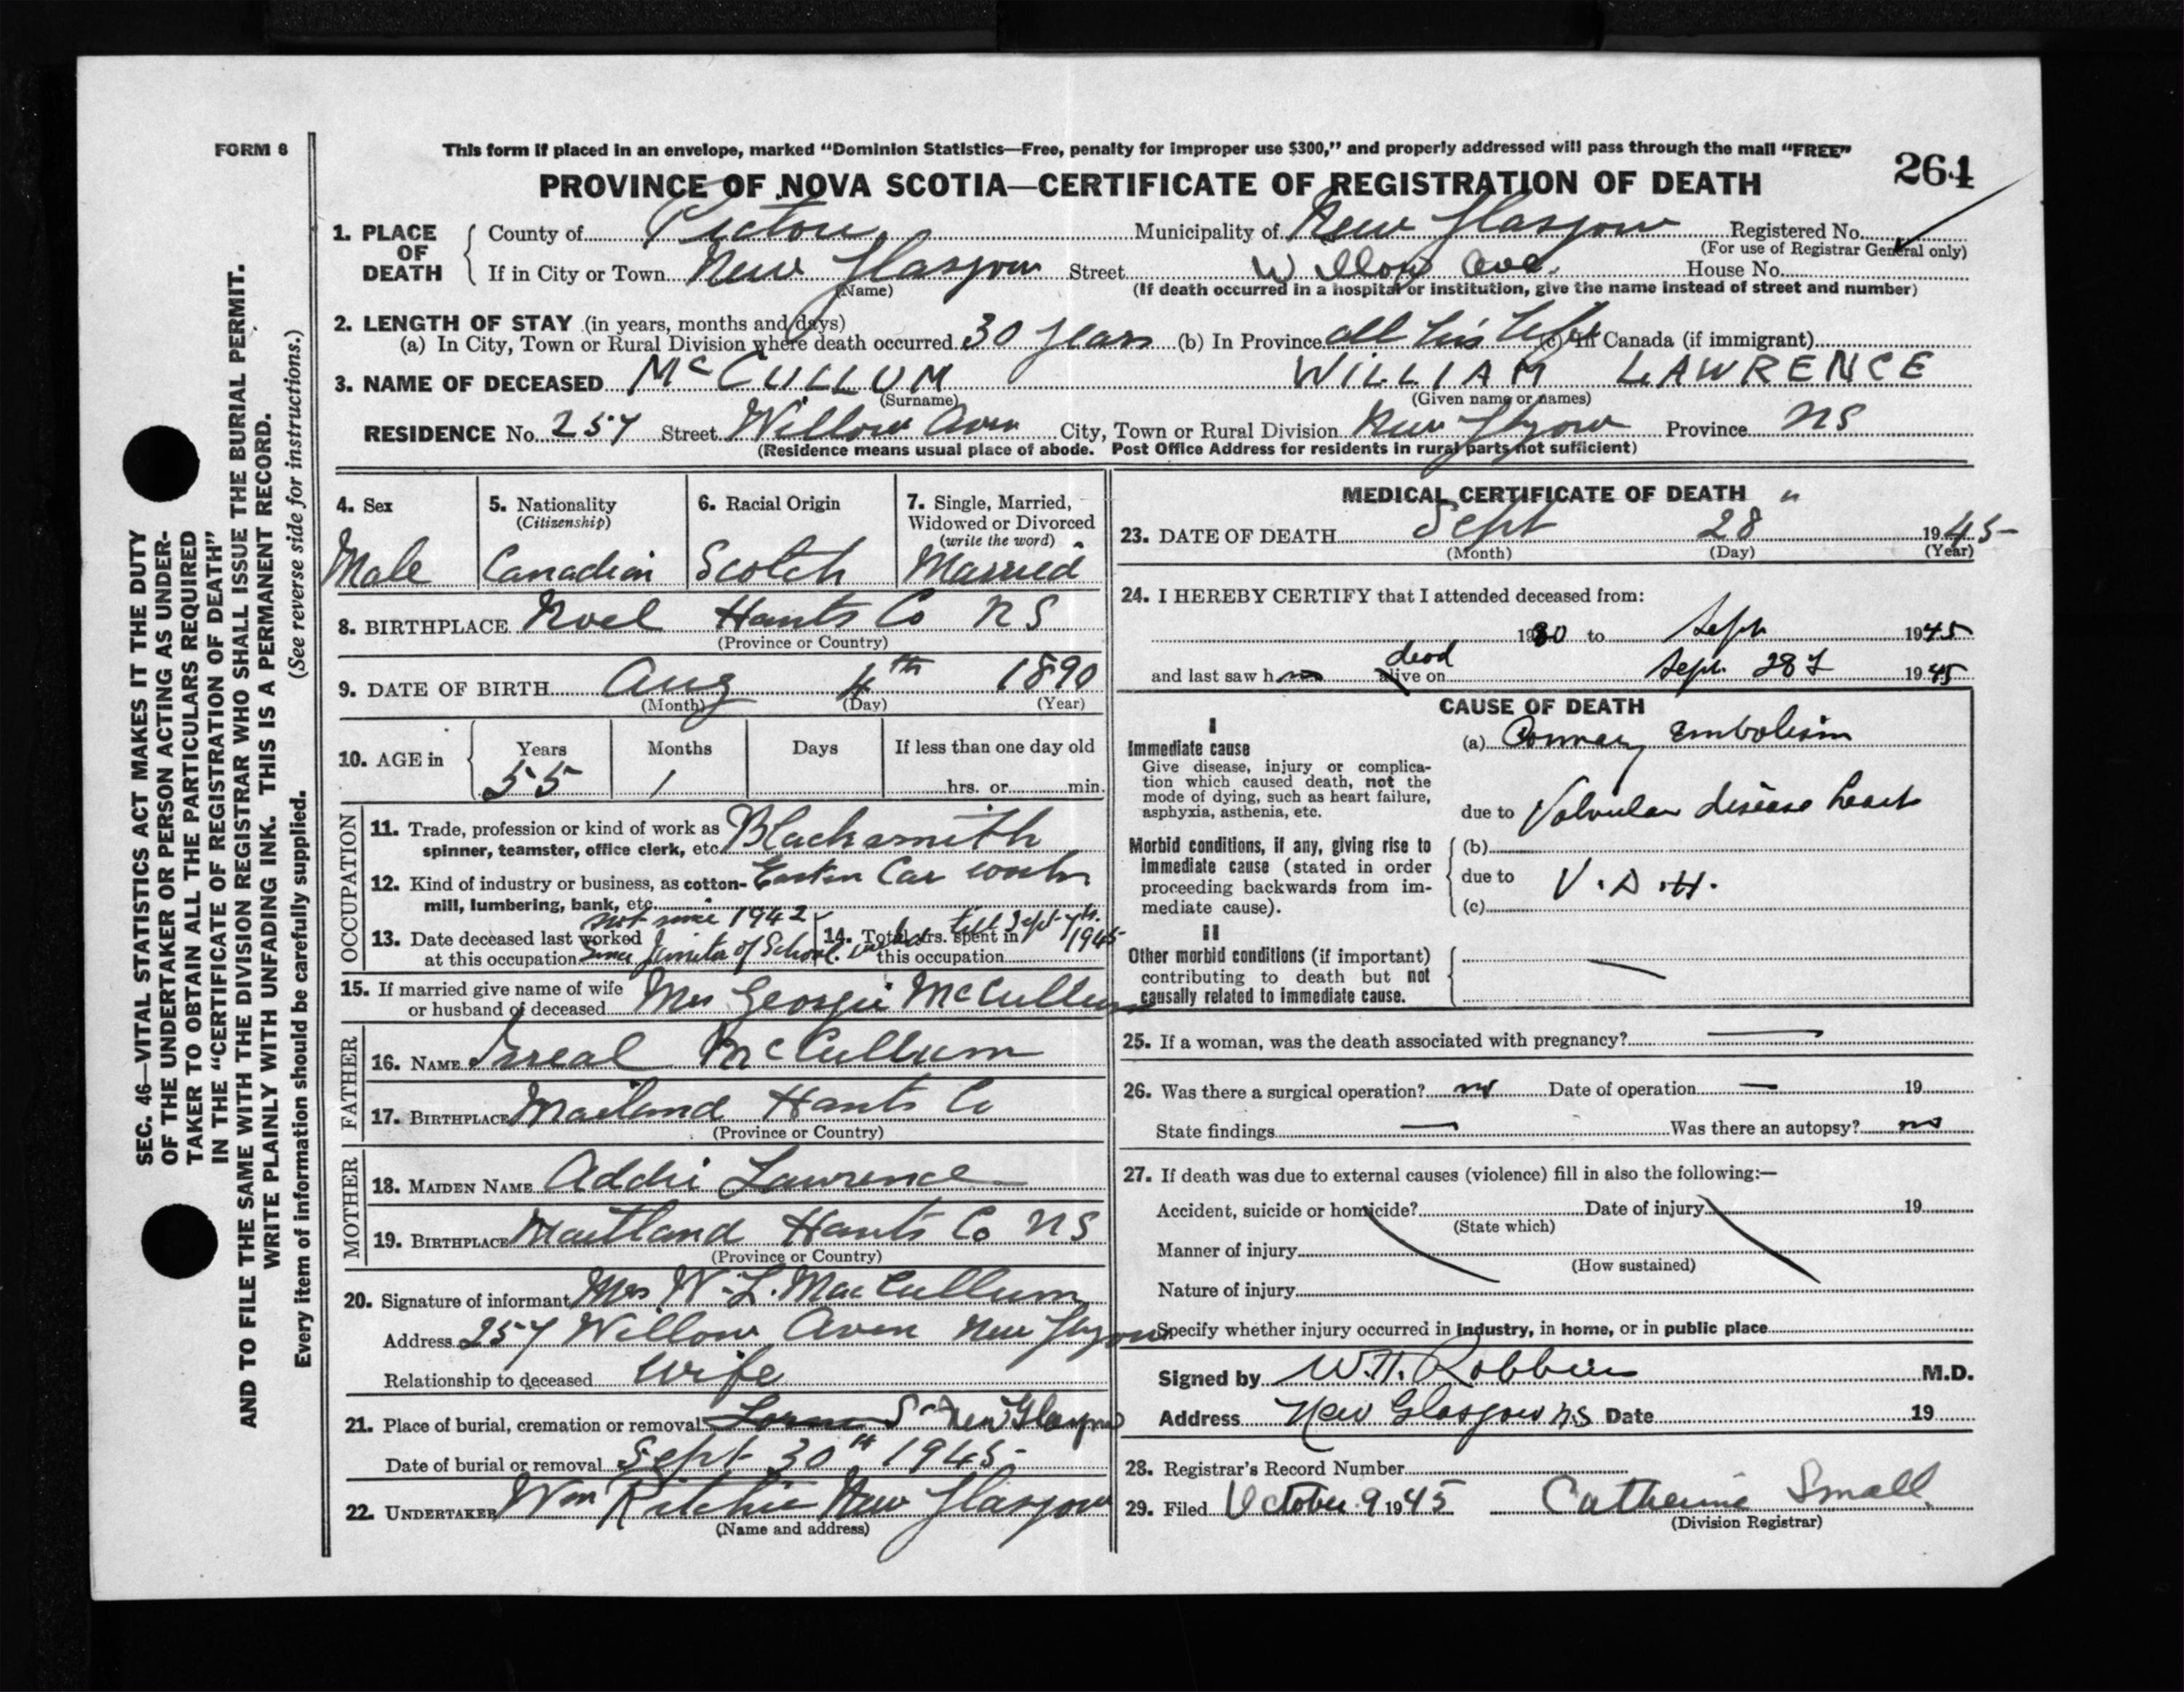 FORM 6
This form if placed in an envelope, marked "Dominion Statistics—Free, penalty for improper use $300," and properly addressed will pass through the mail "FREE"
264
PROVINCE OF NOVA SCOTIA—CERTIFICATE OF REGISTRATION OF DEATH
1. PLACE OF DEATH
County of Pictou Municipality of New Glasgow Registered No.
(For use of Registrar General only)
If in City or Town New Glasgow Street Willow Ave. House No.
(Name) (If death occurred in a hospital or institution, give the name instead of street and number)
2. LENGTH OF STAY (in years, months and days)
(a) In City, Town or Rural Division where death occurred 30 years (b) In Province all his life (c) In Canada (if immigrant)
3. NAME OF DECEASED McCULLUM WILLIAM LAWRENCE
(Surname) (Given name or names)
RESIDENCE No. 257 Street Willow Aven City, Town or Rural Division New Glasgow Province NS
(Residence means usual place of abode. Post Office Address for residents in rural parts not sufficient)
4. Sex
Male
5. Nationality
(Citizenship)
Canadian
6. Racial Origin
Scotch
7. Single, Married,
Widowed or Divorced
(write the word)
Married
8. BIRTHPLACE Noel Hants Co NS
(Province or Country)
9. DATE OF BIRTH Aug 4th 1890
(Month) (Day) (Year)
10. AGE in Years Months Days If less than one day old
55 1 hrs. or min.
OCCUPATION
11. Trade, profession or kind of work as
spinner, teamster, office clerk, etc. Blacksmith
12. Kind of industry or business, as cotton-
mill, lumbering, bank, etc. Eastern Car works
not since 1942
13. Date deceased last worked
at this occupation Since Janitor of School.
14. Total yrs. spent in
this occupation till Sept 7th. 1945
15. If married give name of wife
or husband of deceased Mrs Georgie McCullum
FATHER
16. NAME Isreal McCullum
17. BIRTHPLACE Maitland Hants Co
(Province or Country)
MOTHER
18. MAIDEN NAME Addie Lawrence
19. BIRTHPLACE Maitland Hants Co NS
(Province or Country)
20. Signature of informant Mrs W. L. MacCullum
Address 257 Willow Aven New Glasgow
Relationship to deceased Wife
21. Place of burial, cremation or removal Lorne St New Glasgow
Date of burial or removal Sept 30th 1945
22. UNDERTAKER Wm Ritchie New Glasgow
(Name and address)
MEDICAL CERTIFICATE OF DEATH
23. DATE OF DEATH Sept 28 1945
(Month) (Day) (Year)
24. I HEREBY CERTIFY that I attended deceased from:
1930 to Sept 1945
dead
and last saw h alive on Sept. 28 1945
CAUSE OF DEATH
I
Immediate cause
Give disease, injury or complica-
tion which caused death, not the
mode of dying, such as heart failure,
asphyxia, asthenia, etc.
(a) Coronary Embolism
due to Valvular disease heart
Morbid conditions, if any, giving rise to
immediate cause (stated in order
proceeding backwards from im-
mediate cause).
(b)
due to V.D.H.
(c)
II
Other morbid conditions (if important)
contributing to death but not
causally related to immediate cause.
25. If a woman, was the death associated with pregnancy? —
26. Was there a surgical operation? no Date of operation — 19
State findings — Was there an autopsy? no
27. If death was due to external causes (violence) fill in also the following:—
Accident, suicide or homicide? Date of injury 19
(State which)
Manner of injury
(How sustained)
Nature of injury
Specify whether injury occurred in industry, in home, or in public place
Signed by W.H. Robbins M.D.
Address New Glasgow N.S Date 19
28. Registrar's Record Number
29. Filed October 9 1945 Catherine Small
(Division Registrar)
SEC. 46—VITAL STATISTICS ACT MAKES IT THE DUTY
OF THE UNDERTAKER OR PERSON ACTING AS UNDER-
TAKER TO OBTAIN ALL THE PARTICULARS REQUIRED
IN THE "CERTIFICATE OF REGISTRATION OF DEATH"
AND TO FILE THE SAME WITH THE DIVISION REGISTRAR WHO SHALL ISSUE THE BURIAL PERMIT.
WRITE PLAINLY WITH UNFADING INK. THIS IS A PERMANENT RECORD.
Every item of information should be carefully supplied. (See reverse side for instructions.)